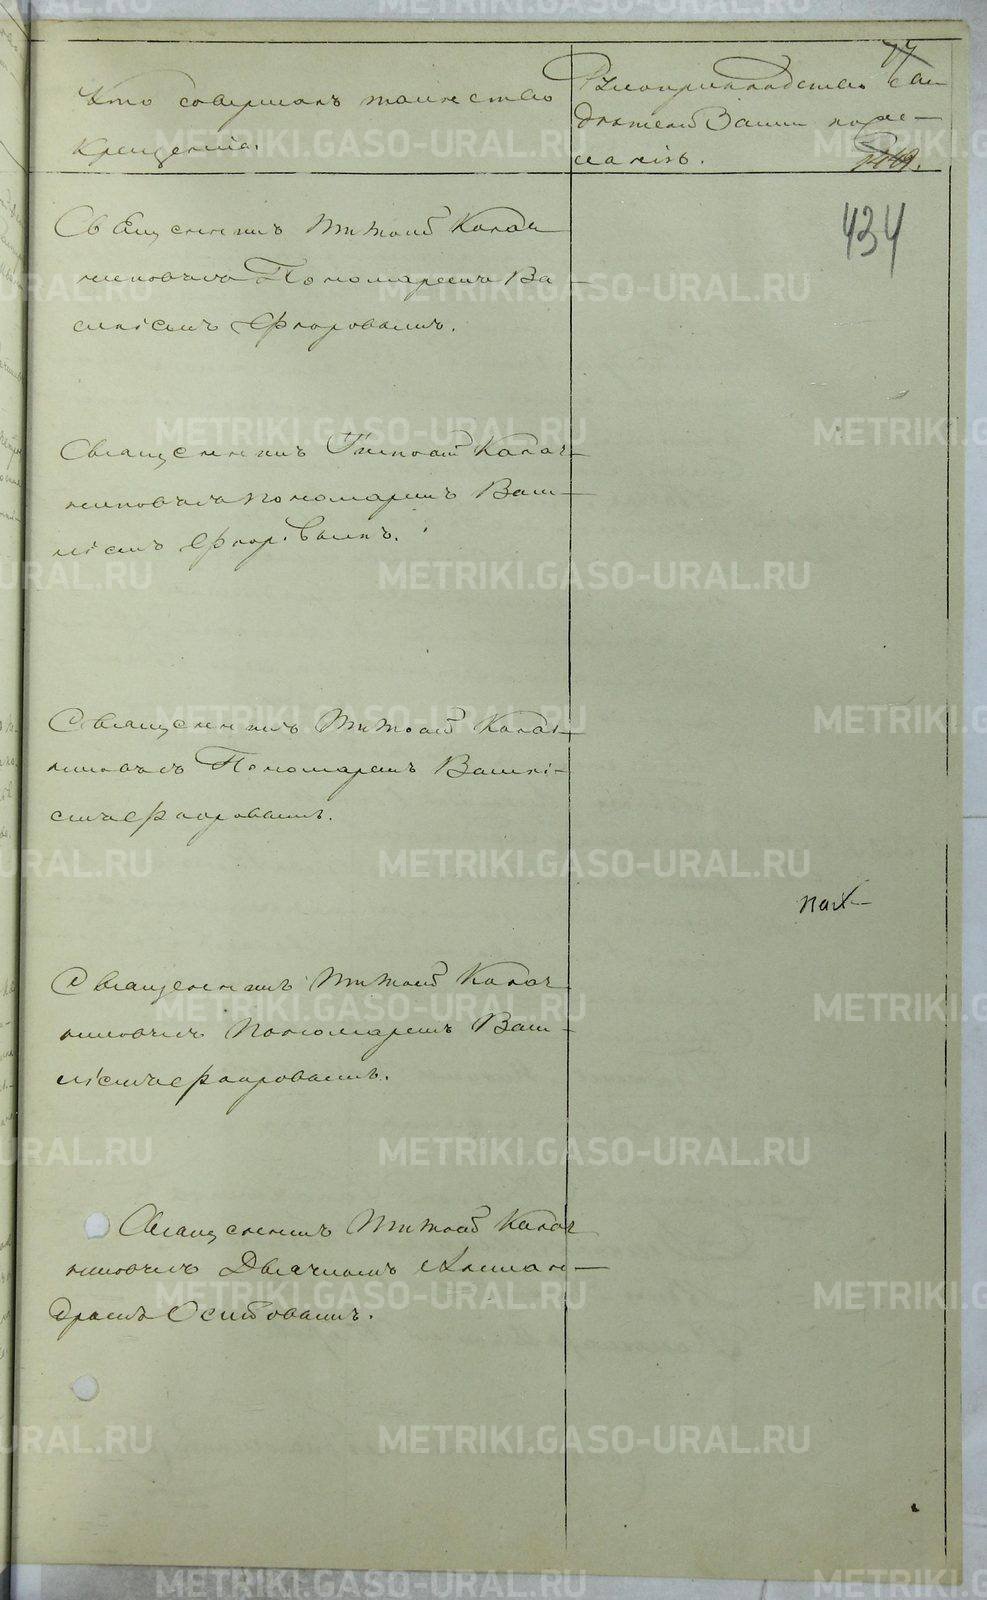 Кто совершалъ таинство
Крещенія.
Рукоприкладство сви
дѣтелей записи по же-
ланію.
434
Священникъ Тимофей Калач
никовъ съ Пономаремъ Ва-
силіемъ Флоровымъ.
Священникъ Тимофей Калач-
никовъ съ пономаремъ Васи-
ліемъ Флоровымъ.
Священникъ Тимофей Калач-
никовъ съ Пономаремъ Василі-
емъ Флоровымъ.
пол
Священникъ Тимофей Калач
никовъ съ Пономаремъ Васи-
ліемъ Флоровымъ.
Священникъ Тимофей Калач
никовъ съ Дьячкомъ Алексан-
дромъ Осиповымъ.
METRIKI.GASO-URAL.RU